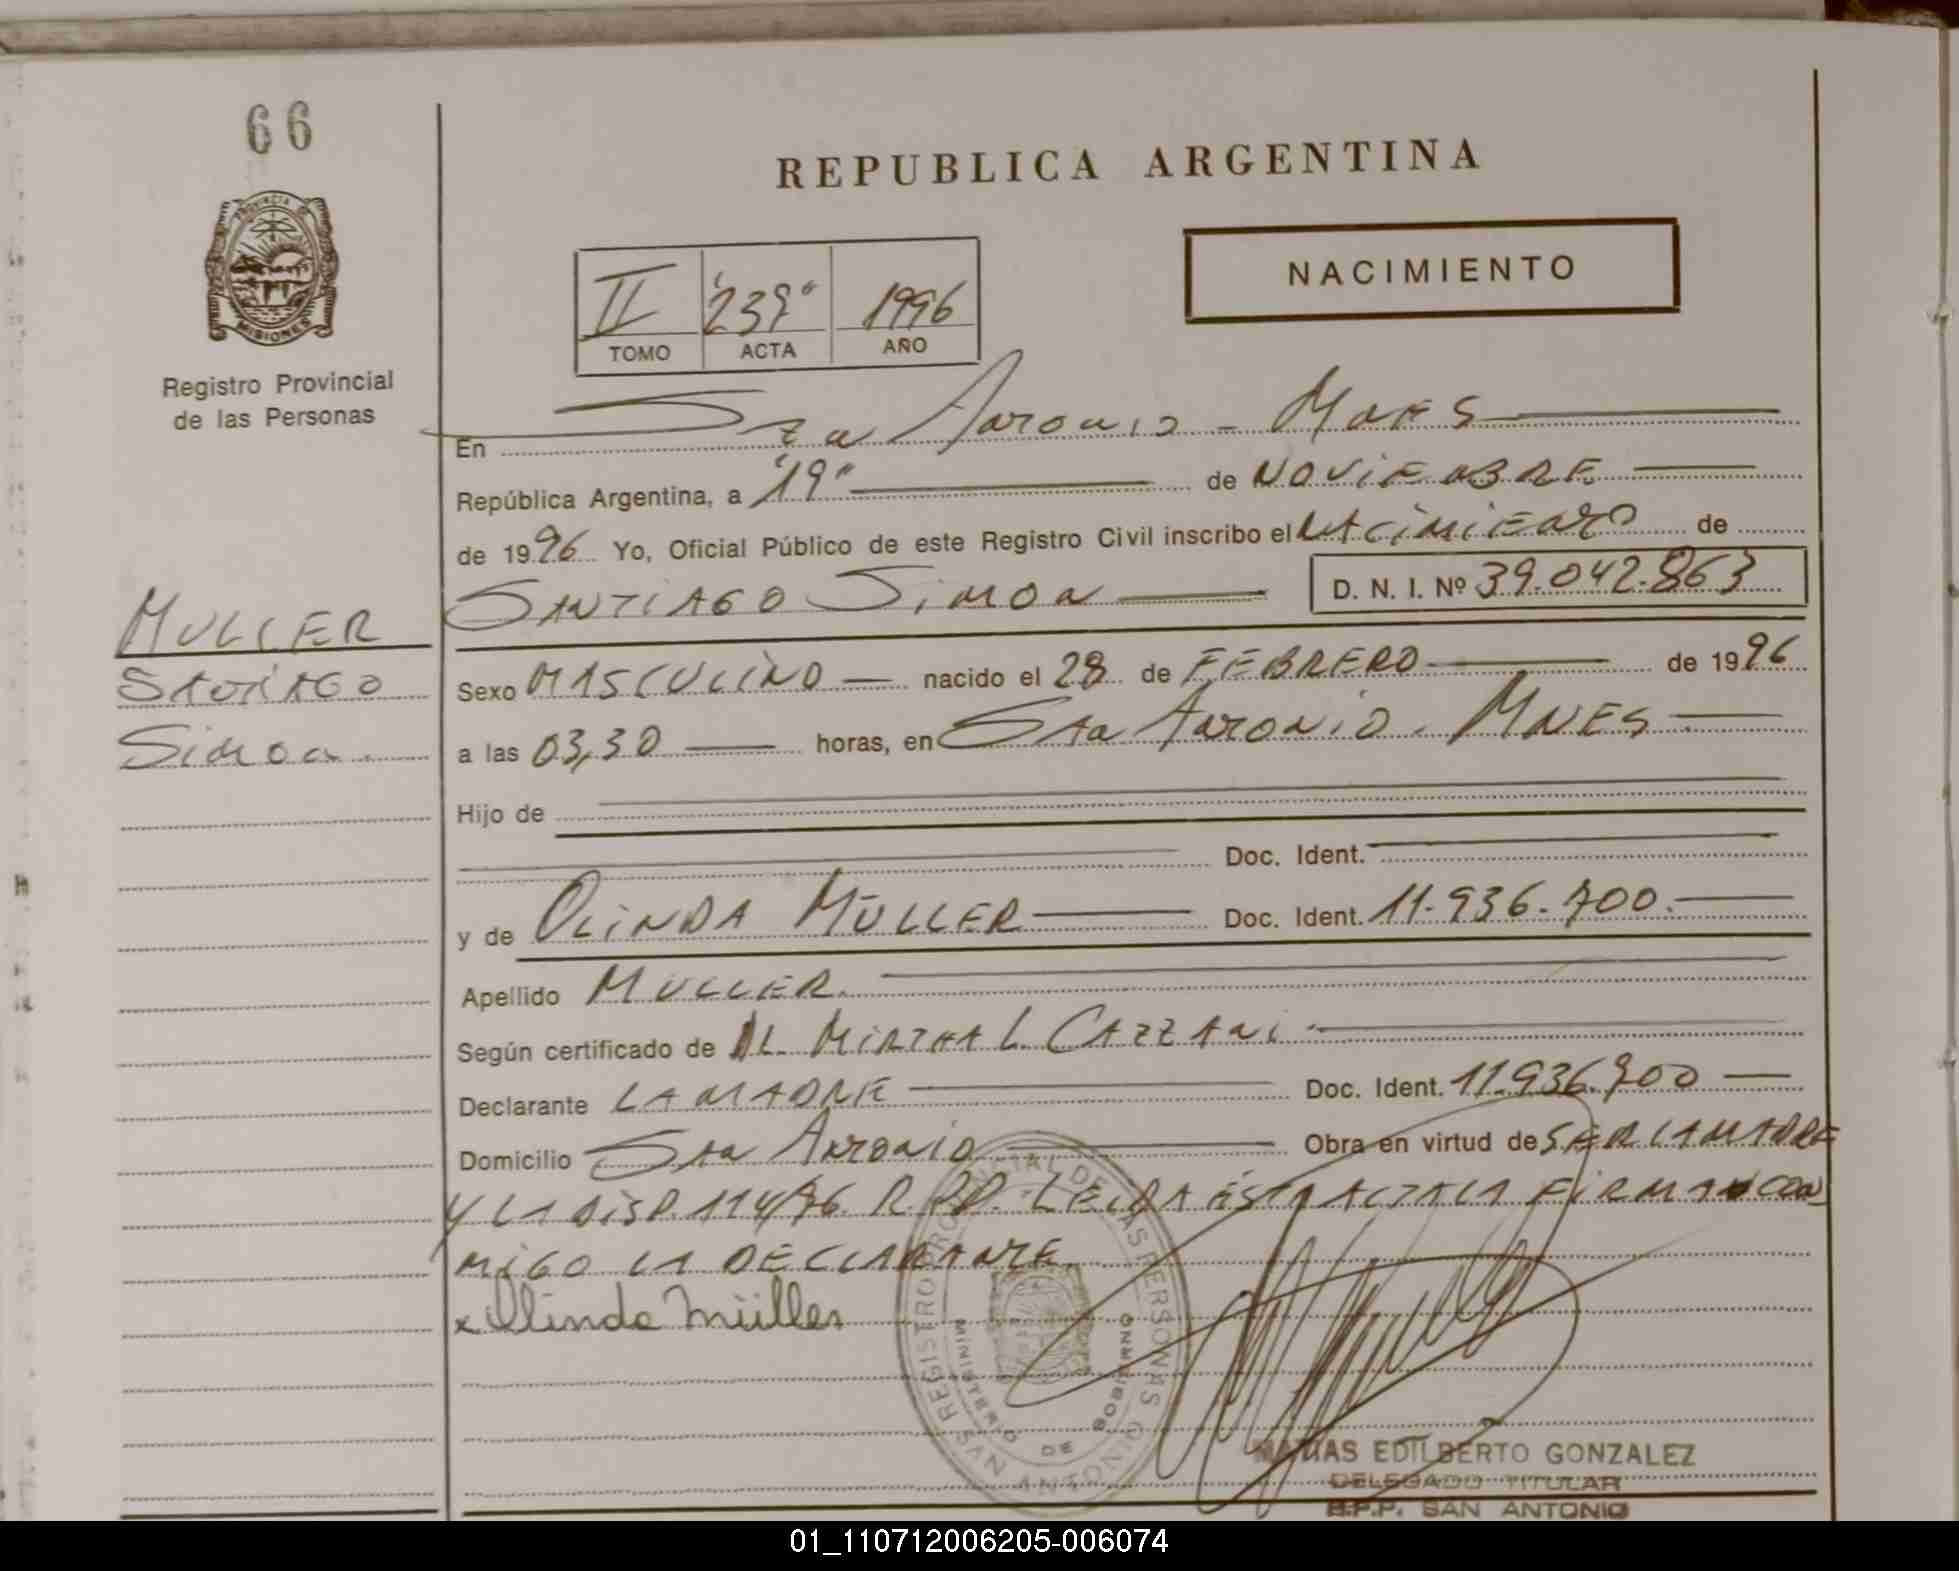 66
REPUBLICA ARGENTINA
PROVINCIA DE
MISIONES
Registro Provincial
de las Personas
NACIMIENTO
II "239" 1996
TOMO ACTA AÑO
En San Antonio - Mnes
República Argentina, a "19" de NOVIEMBRE
de 1996 Yo, Oficial Público de este Registro Civil inscribo el NACIMIENTO de
SANTIAGO SIMON D. N. I. Nº 39.042.863
MULLER
SANTIAGO
Simon.
Sexo MASCULINO nacido el 28 de FEBRERO de 1996
a las 03,30 horas, en San Antonio. MNES
Hijo de
Doc. Ident.
y de OLINDA MÜLLER Doc. Ident. 11.936.700.
Apellido MULLER.
Según certificado de MIRTHA L. CAZZANI.
Declarante LA MADRE Doc. Ident. 11.936.700
Domicilio San Antonio Obra en virtud de SER LA MADRE
Y LA DISP. 114/96. R.P.P. LEIDA ESTA ACTA LA FIRMA CON
MIGO LA DECLARANTE.
x Olinda Müller
REGISTRO PROVINCIAL DE LAS PERSONAS
SAN ANTONIO
MINISTERIO DE GOBIERNO
MATIAS EDILBERTO GONZALEZ
DELEGADO TITULAR
R.P.P. SAN ANTONIO
01_110712006205-006074